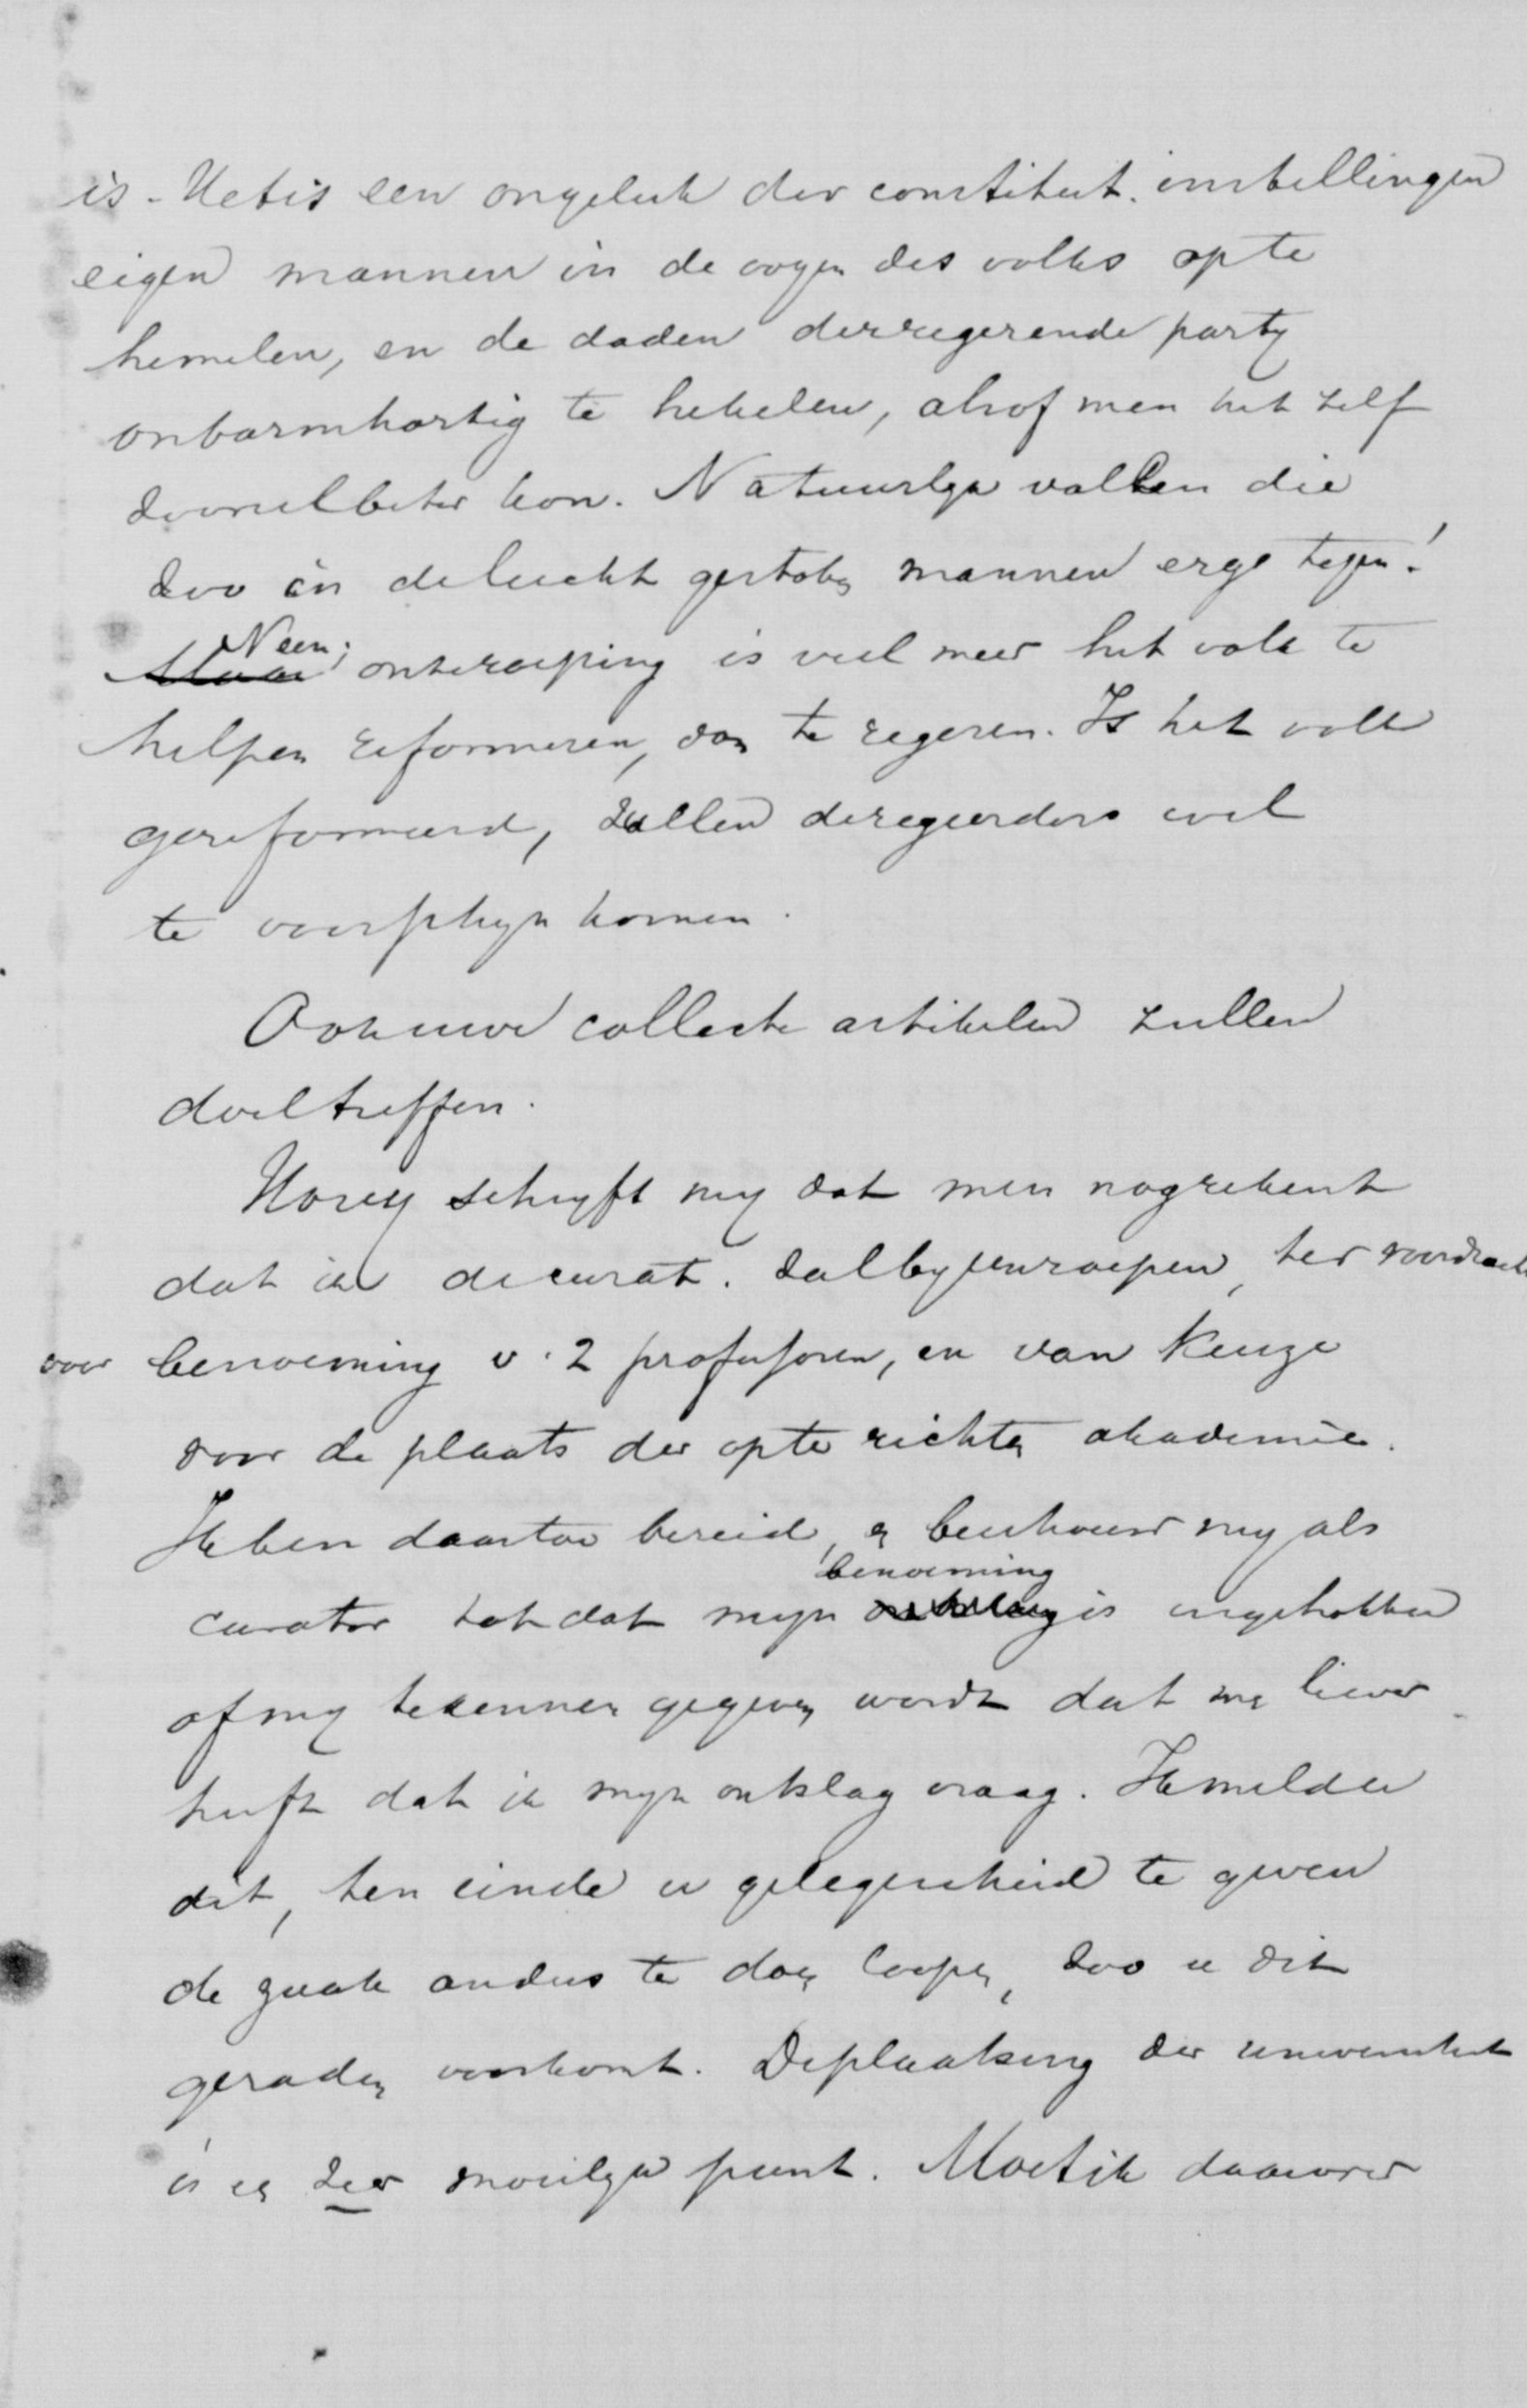 is. Het is een ongeluk der constitut. instellingen
eigen mannen in de oogen des volks op te
hemelen, en de daden der regerende party
onbarmhartig te hekelen, alsof men het zelf
zooveel beter kon. Natuurlyk vallen die
zoo in de lucht gestoken mannen erge tegen!
Maar Neen; onze roeping is veel meer het volk te
helpen reformeren, dan te regeren. Is het volk
gereformeerd, zullen de regeerders wel
te voorschyn komen.
Ook uwe collecte artikelen zullen
doeltreffen.
Hovy schryft my dat men nog rekent
dat ik de curat. zal byeenroepen, ter voordracht
voor benoeming v. 2 professoren, en van keuze
voor de plaats der op te richten akademie.
Ik ben daartoe bereid, en beschouw my als
curator totdat myn benoeming is ingetrokken
of my te kennen gegeven wordt dat men liever
heeft dat ik myn ontslag vraag. Ik melde
dit, ten einde u gelegenheid te geven
de zaak anders te doen loopen, zoo u dit
geraden voorkomt. De plaatsing der universiteit
is een zeer moeilyk punt. Moet ik daarover